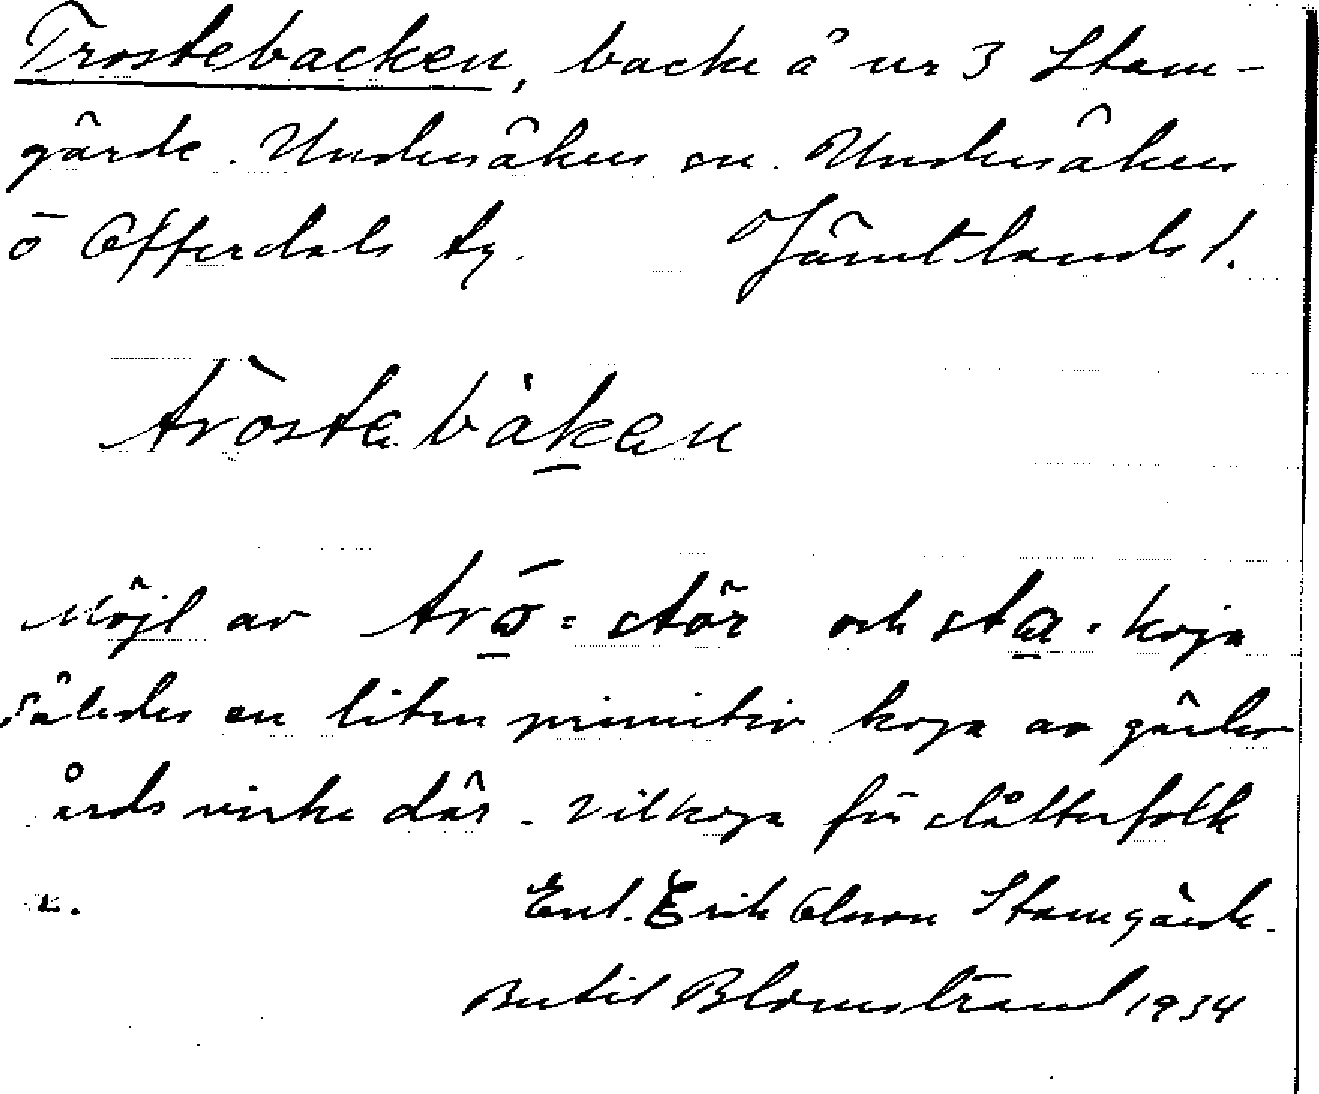 Trostebacken, backe å nr 3 Stam-
gärde. Undersåkers sn. Undersåkers
o Offerdals tg. Jämtlands l.
tròstebàken
Möjl av trō = stör och sta = koja
således en liten primitiv koja av gärdes-
årds virke där. Vilkoja för slåtterfolk
Enl. Erik Olsson Stamgärde.
Bertil Blomstrand 1934